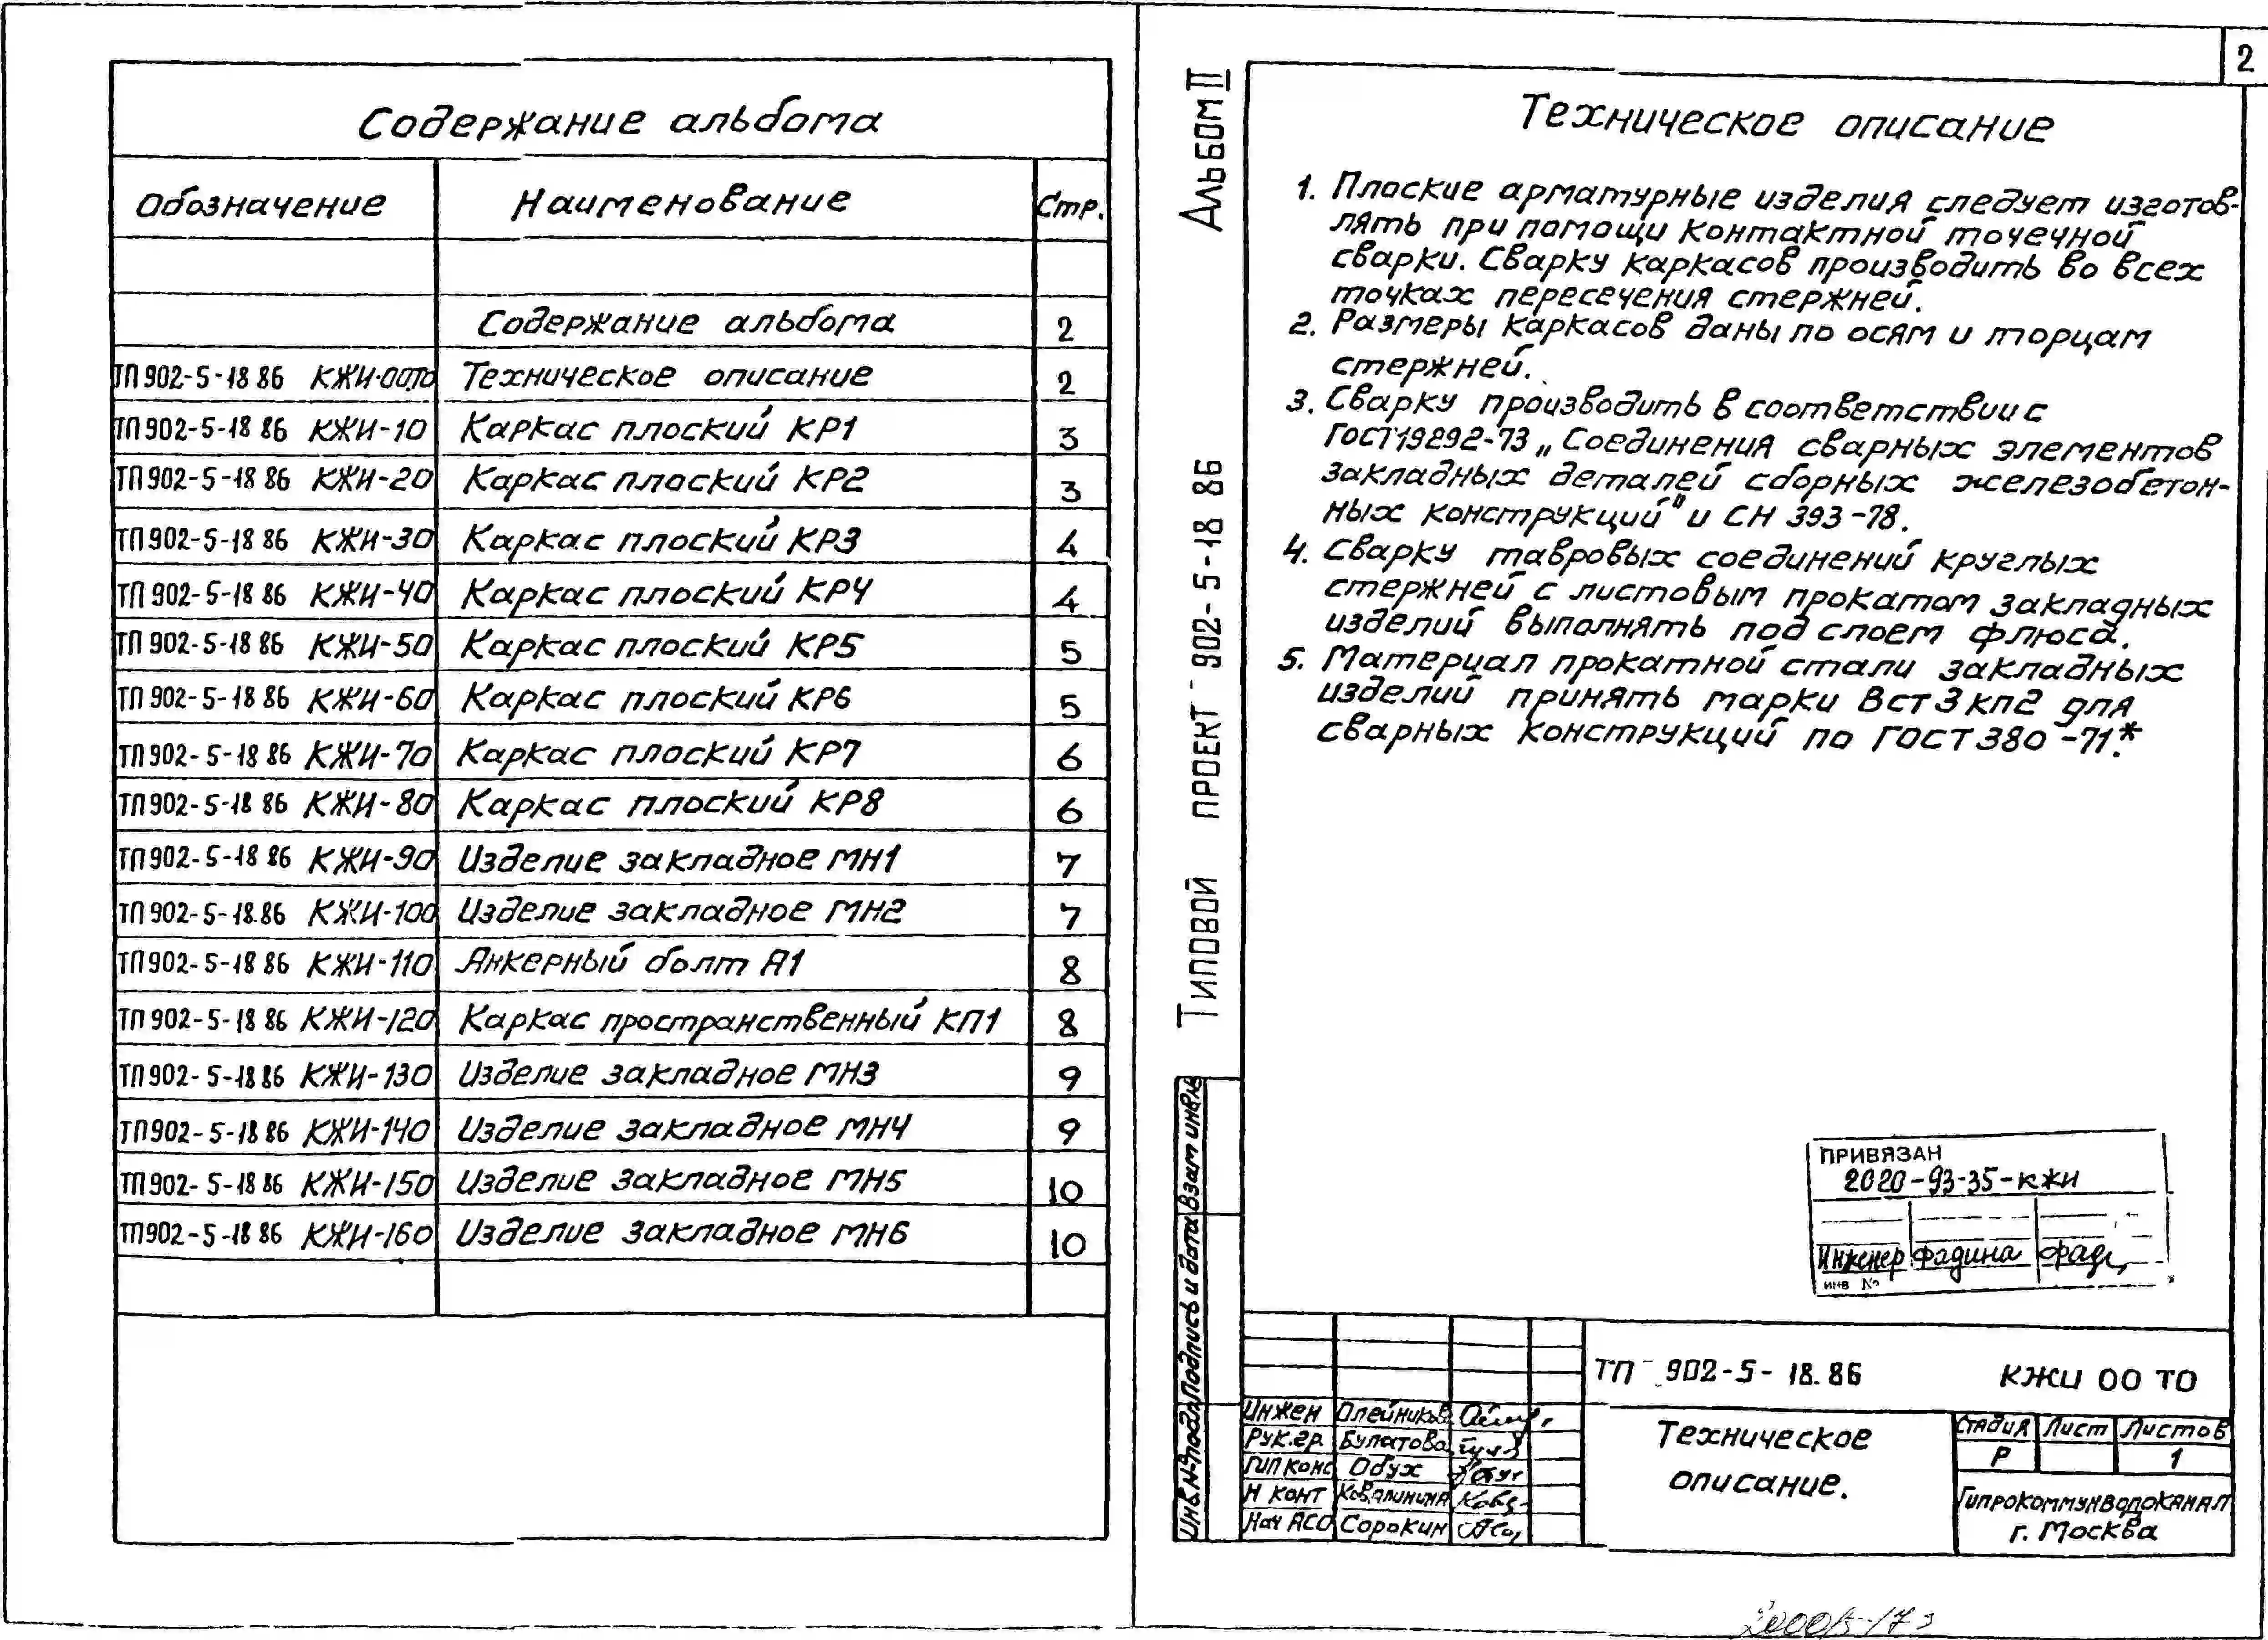 Содержание альбома
Обозначение Наименование Стр.
Содержание альбома 2
ТП 902-5-18 86 КЖИ-00ТО Техническое описание 2
ТП 902-5-18 86 КЖИ-10 Каркас плоский КР1 3
ТП 902-5-18 86 КЖИ-20 Каркас плоский КР2 3
ТП 902-5-18 86 КЖИ-30 Каркас плоский КР3 4
ТП 902-5-18 86 КЖИ-40 Каркас плоский КР4 4
ТП 902-5-18 86 КЖИ-50 Каркас плоский КР5 5
ТП 902-5-18 86 КЖИ-60 Каркас плоский КР6 5
ТП 902-5-18 86 КЖИ-70 Каркас плоский КР7 6
ТП 902-5-18 86 КЖИ-80 Каркас плоский КР8 6
ТП 902-5-18 86 КЖИ-90 Изделие закладное МН1 7
ТП 902-5-18.86 КЖИ-100 Изделие закладное МН2 7
ТП 902-5-18 86 КЖИ-110 Анкерный болт А1 8
ТП 902-5-18 86 КЖИ-120 Каркас пространственный КП1 8
ТП 902-5-18 86 КЖИ-130 Изделие закладное МН3 9
ТП 902-5-18 86 КЖИ-140 Изделие закладное МН4 9
ТП 902-5-18 86 КЖИ-150 Изделие закладное МН5 10
ТП 902-5-18 86 КЖИ-160 Изделие закладное МН6 10
2
Альбом III
Типовой проект 902-5-18 86
Техническое описание
1. Плоские арматурные изделия следует изготов-
лять при помощи контактной точечной
сварки. Сварку каркасов производить во всех
точках пересечения стержней.
2. Размеры каркасов даны по осям и торцам
стержней.
3. Сварку производить в соответствии с
ГОСТ 19292-73 „Соединения сварных элементов
закладных деталей сборных железобетон-
ных конструкций" и СН 393-78.
4. Сварку тавровых соединений круглых
стержней с листовым прокатом закладных
изделий выполнять под слоем флюса.
5. Материал прокатной стали закладных
изделий принять марки Вст3кп2 для
сварных конструкций по ГОСТ 380-71*.
ПРИВЯЗАН
2020-93-35-кжи
Инженер Фадина Фад
инв №
Взам инв №
Подпись и дата
Инв. № подл.
ТП 902-5-18.86 КЖИ 00 ТО
Инжен Олейников
Рук.гр. Булатова
ГИП конс Обух
Н конт Ковалинина
Нач АСО Сорокин
Техническое
описание.
Стадия Лист Листов
Р 1
Гипрокоммунводоканал
г. Москва